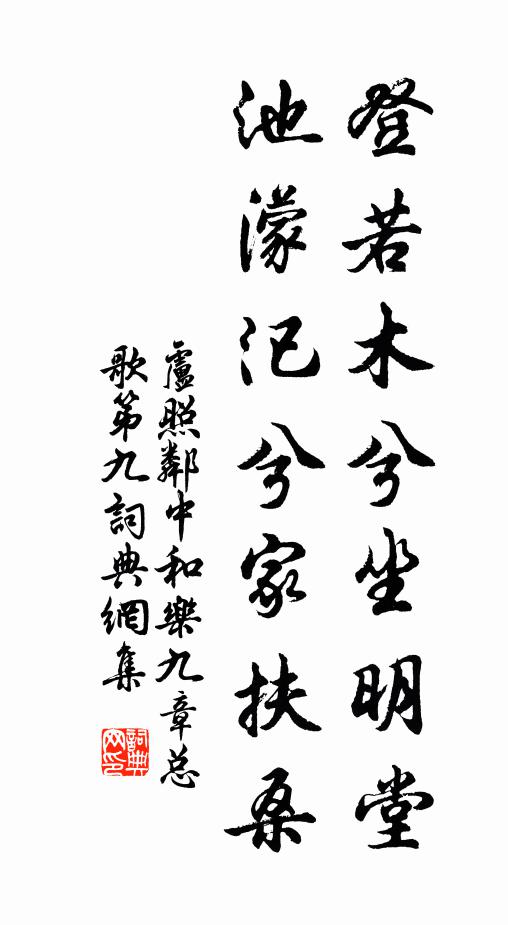 登若木兮坐明堂
池濛汜兮家扶桑
盧照鄰中和樂九章总
歌第九詞典網集
詞典
网印